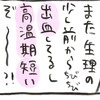 また生理
少し前からちびちび
出血してるし
高温期短い
ぞ〜〜?!